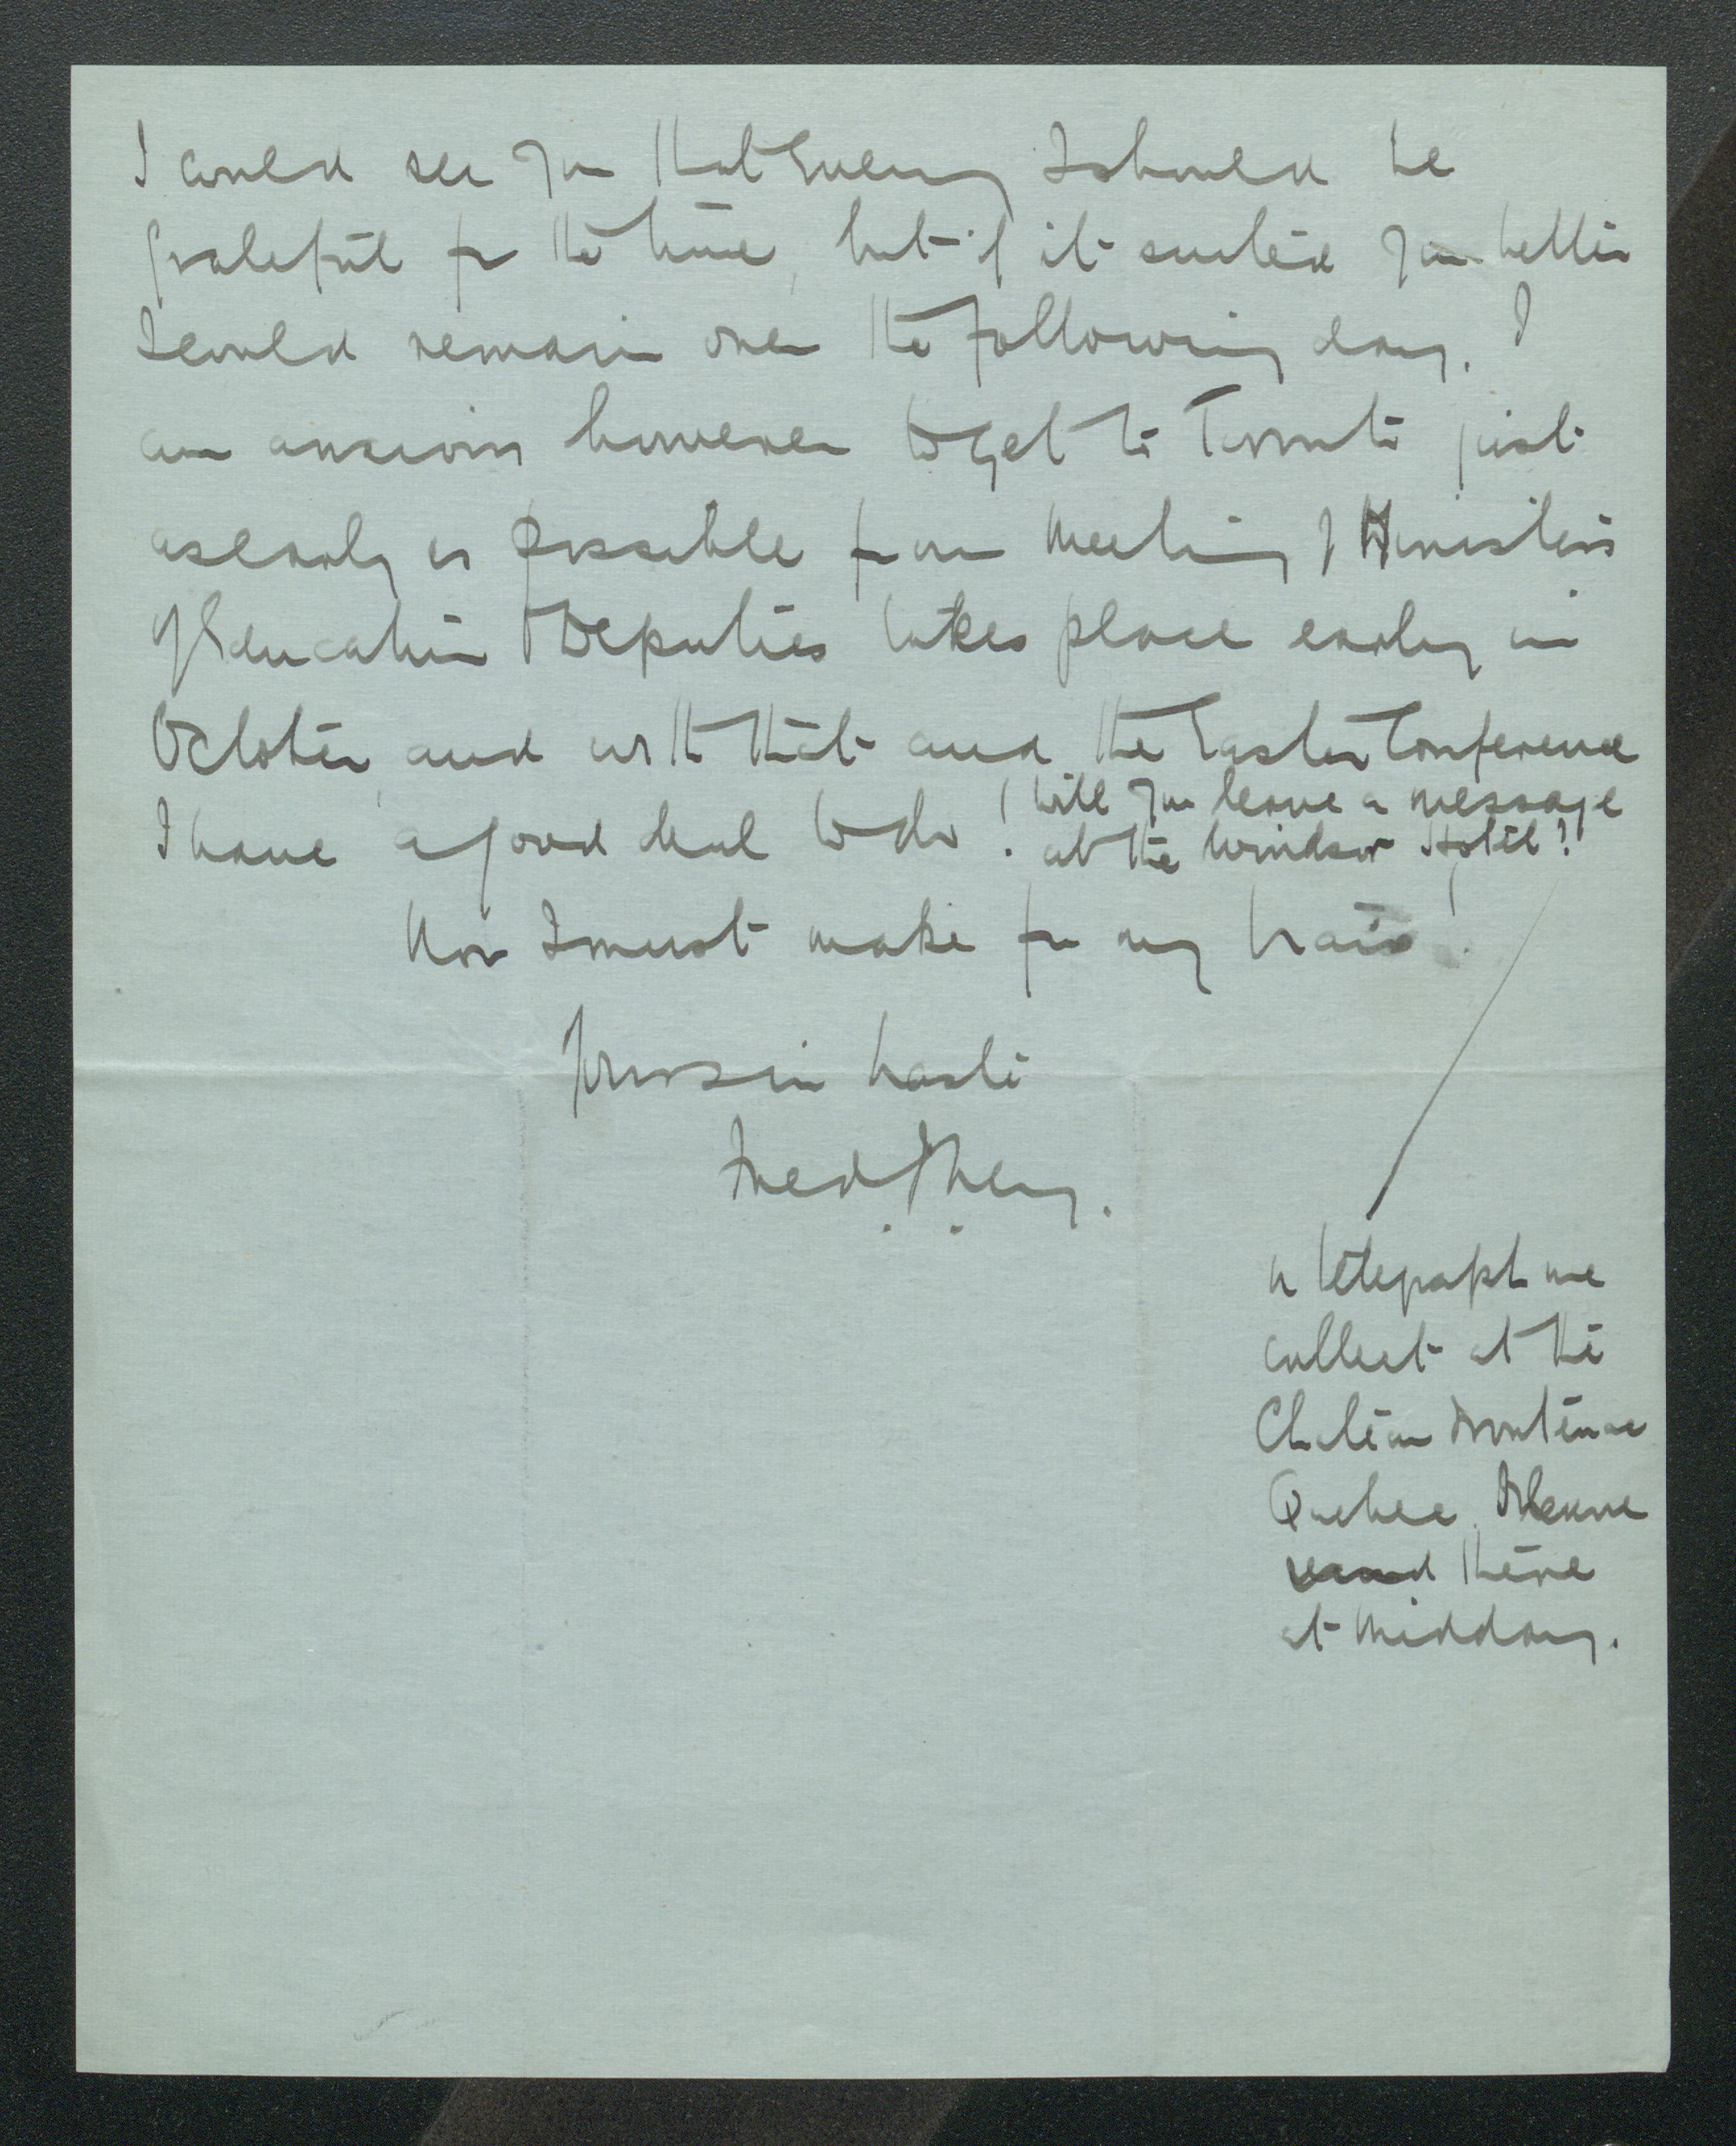 I could see you that evening I should be
grateful for the time, but if it suited you better
I could remain over the following day. I
am anxious however to get to Toronto just
as early as possible for our Meeting of Ministers
of Education & Deputies takes place early in
October, and with that and the Easter Conference
I have a good deal to do! Will you leave a message
at the Windsor Hotel?
Now I must make for my train!
Yours in haste
Fred. J. Ney.
or telegraph me
collect at the
Chateau Frontenac
Quebec.
there
at midday.